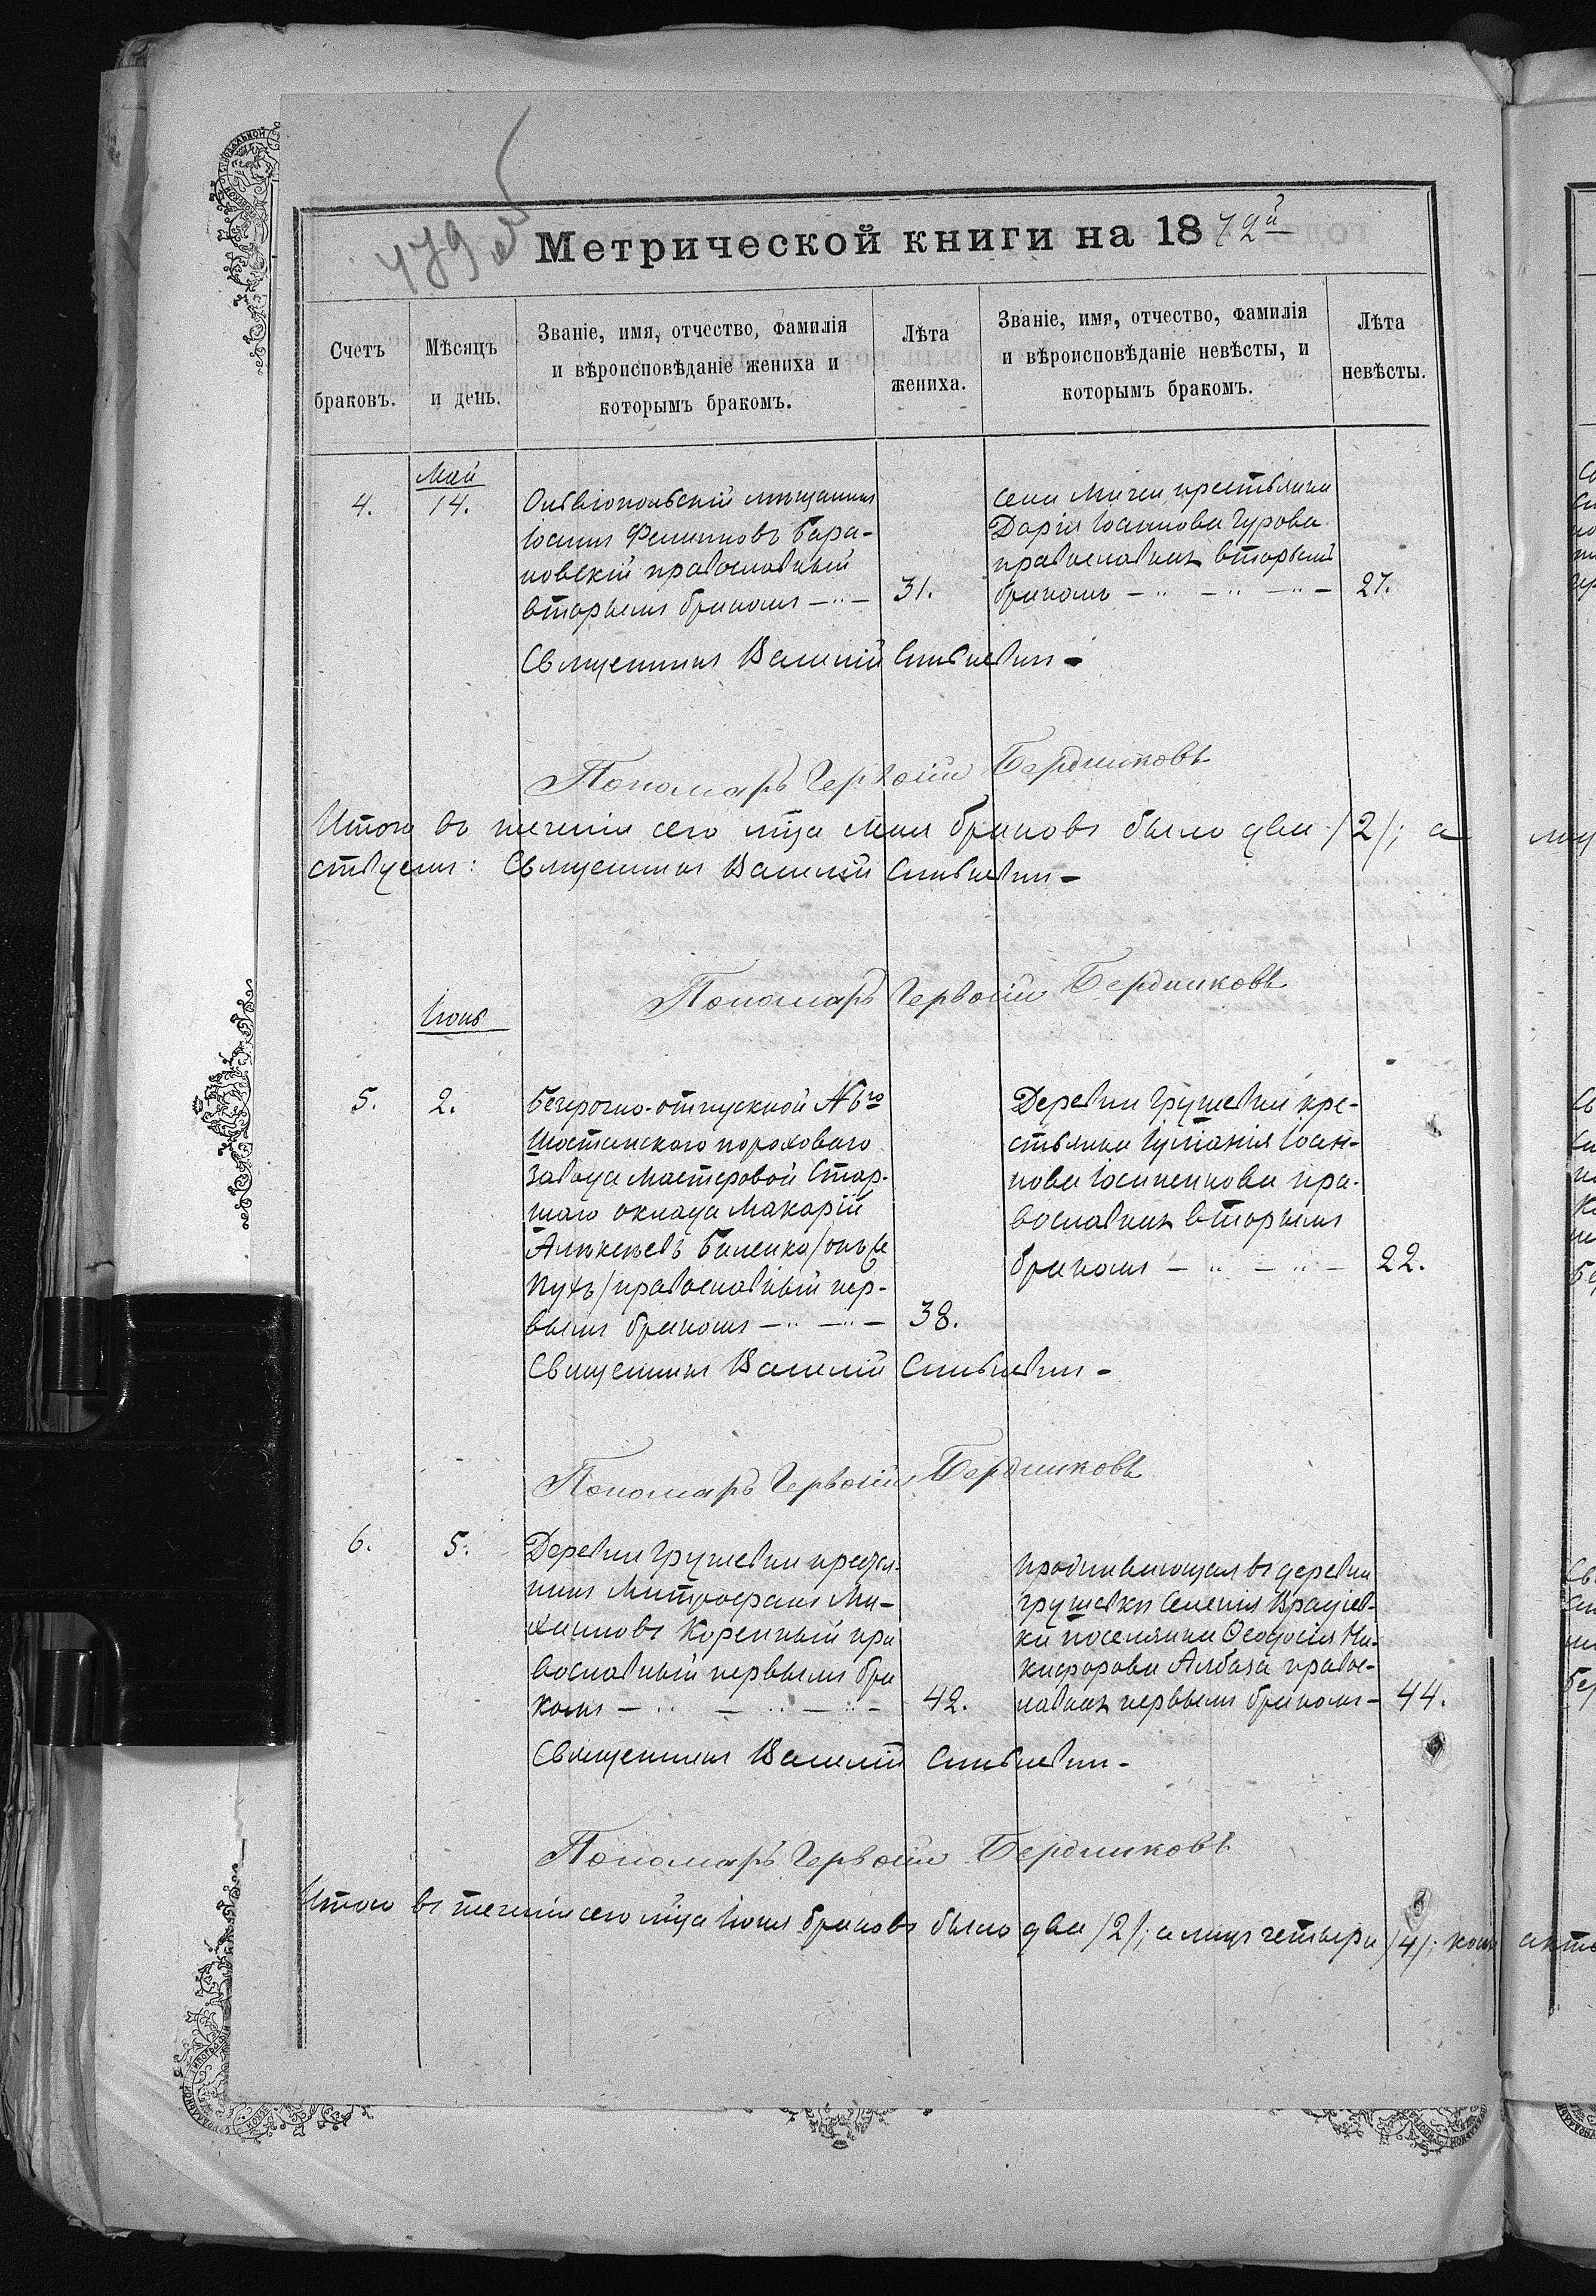 Метрической книги на 1872й
Счетъ браковъ.
Мѣсяцъ и день.
Званіе, имя, отчество, фамилія
и вѣроисповѣданіе жениха и
которымъ бракомъ.
Лѣта
жениха.
Званіе, имя, отчество, фамилія
и вѣроисповѣданіе невѣсты, и
которымъ бракомъ.
Лѣта
невѣсты.
Май
4.
14.
Ольвіопольскій мѣщанинъ
Іоаннъ Филиповъ Бара-
новскій православный
вторымъ бракомъ
31.
села Мигеи крестьянка
Дарія Іоаннова Гурова
православная вторымъ
бракомъ
27.
Священникъ Василій
Пономарь Бердниковъ
Итого въ теченіи сего мца Мая браковъ было два /2/; а
Священникъ Василій
Пономарь Бердниковъ
Іюнь
5.
2.
Безсрочно-отпускной
Шостенскаго пороховаго
завода мастеровой Стар-
шаго оклада Макарій
Алексѣевъ Биленко /онъ же
Пухъ/ православный пер-
вымъ бракомъ
38.
Деревни Грушевки кре-
стьянка Іуліанія Іоан-
нова Іосипенкова пра-
вославная вторымъ
бракомъ
22.
Священникъ Василій
Пономарь Бердниковъ
6.
5.
Деревни Грушевки крестья-
нинъ Митрофанъ Ми-
хаиловъ Коренный пра
вославный первымъ бра
комъ
42.
проживающая въ деревни
Грушевки Селенія Врадіев-
ки поселянка Ѳеодосія Ни-
кифорова Албаза правос-
лавная первымъ бракомъ
44.
Священникъ Василій
Пономарь Бердниковъ
Итого въ теченіи сего мца Іюня браковъ было два /2/; а лицъ четыри /4/; коихъ